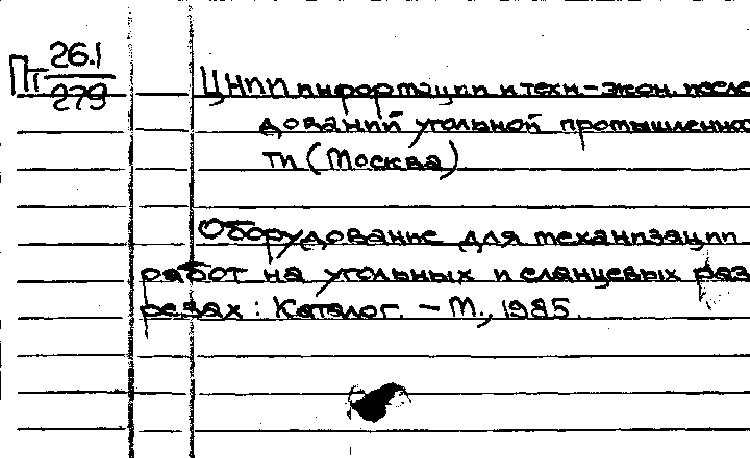 Пт 26.1
279
ЦНИИ информации и техн-экон. иссле
дований угольной промышленнос
ти (Москва)
Оборудование для механизации
работ на угольных и сланцевых раз
резах: Каталог. – М., 1985.